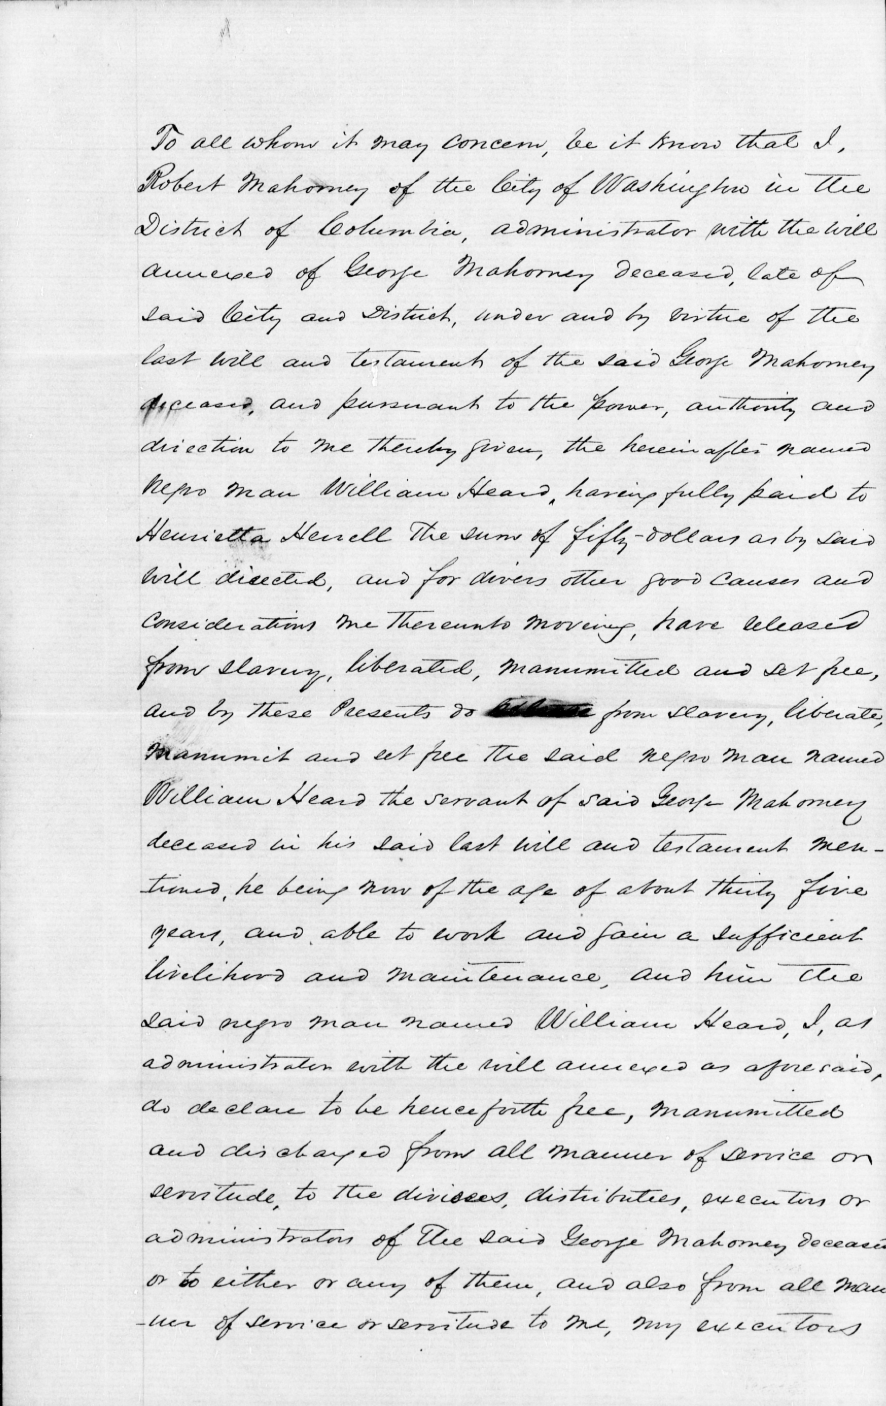 To all whom it may concern, be it know that I,
Robert Mahorney of the City of Washington in the
District of Columbia, administrator with the will
annexed of George Mahorney deceased, late of
said City and District, under and by virtue of the
last will and testament of the said George Mahorney
deceased, and pursuant to the power, authority and
direction to me thereby given, the hereinafter named
negro man William Heard, having fully paid to
Henrietta Herrell the sum of fifty-dollars as by said
will directed, and for divers other good causes and
considerations me thereunto moving, have released
from slavery, liberated, manumitted and set free,
and by these Presents do from slavery, liberate,
manumit and set free the said negro man named
William Heard the servant of said George Mahorney
deceased in his said last will and testament men-
-tioned, he being now of the age of about thirty five
years, and able to work and gain a sufficient
livelihood and maintenance, and him the
said negro man named William Heard, I, as
administrator with the will annexed as aforesaid,
do declare to be henceforth free, manumitted
and discharged from all manner of service or
servitude, to the divisees, distributees, executors or
administrators of the said George Mahorney deceased
or to either or any of them, and also from all man
-ner of service or servitude to me, my executors